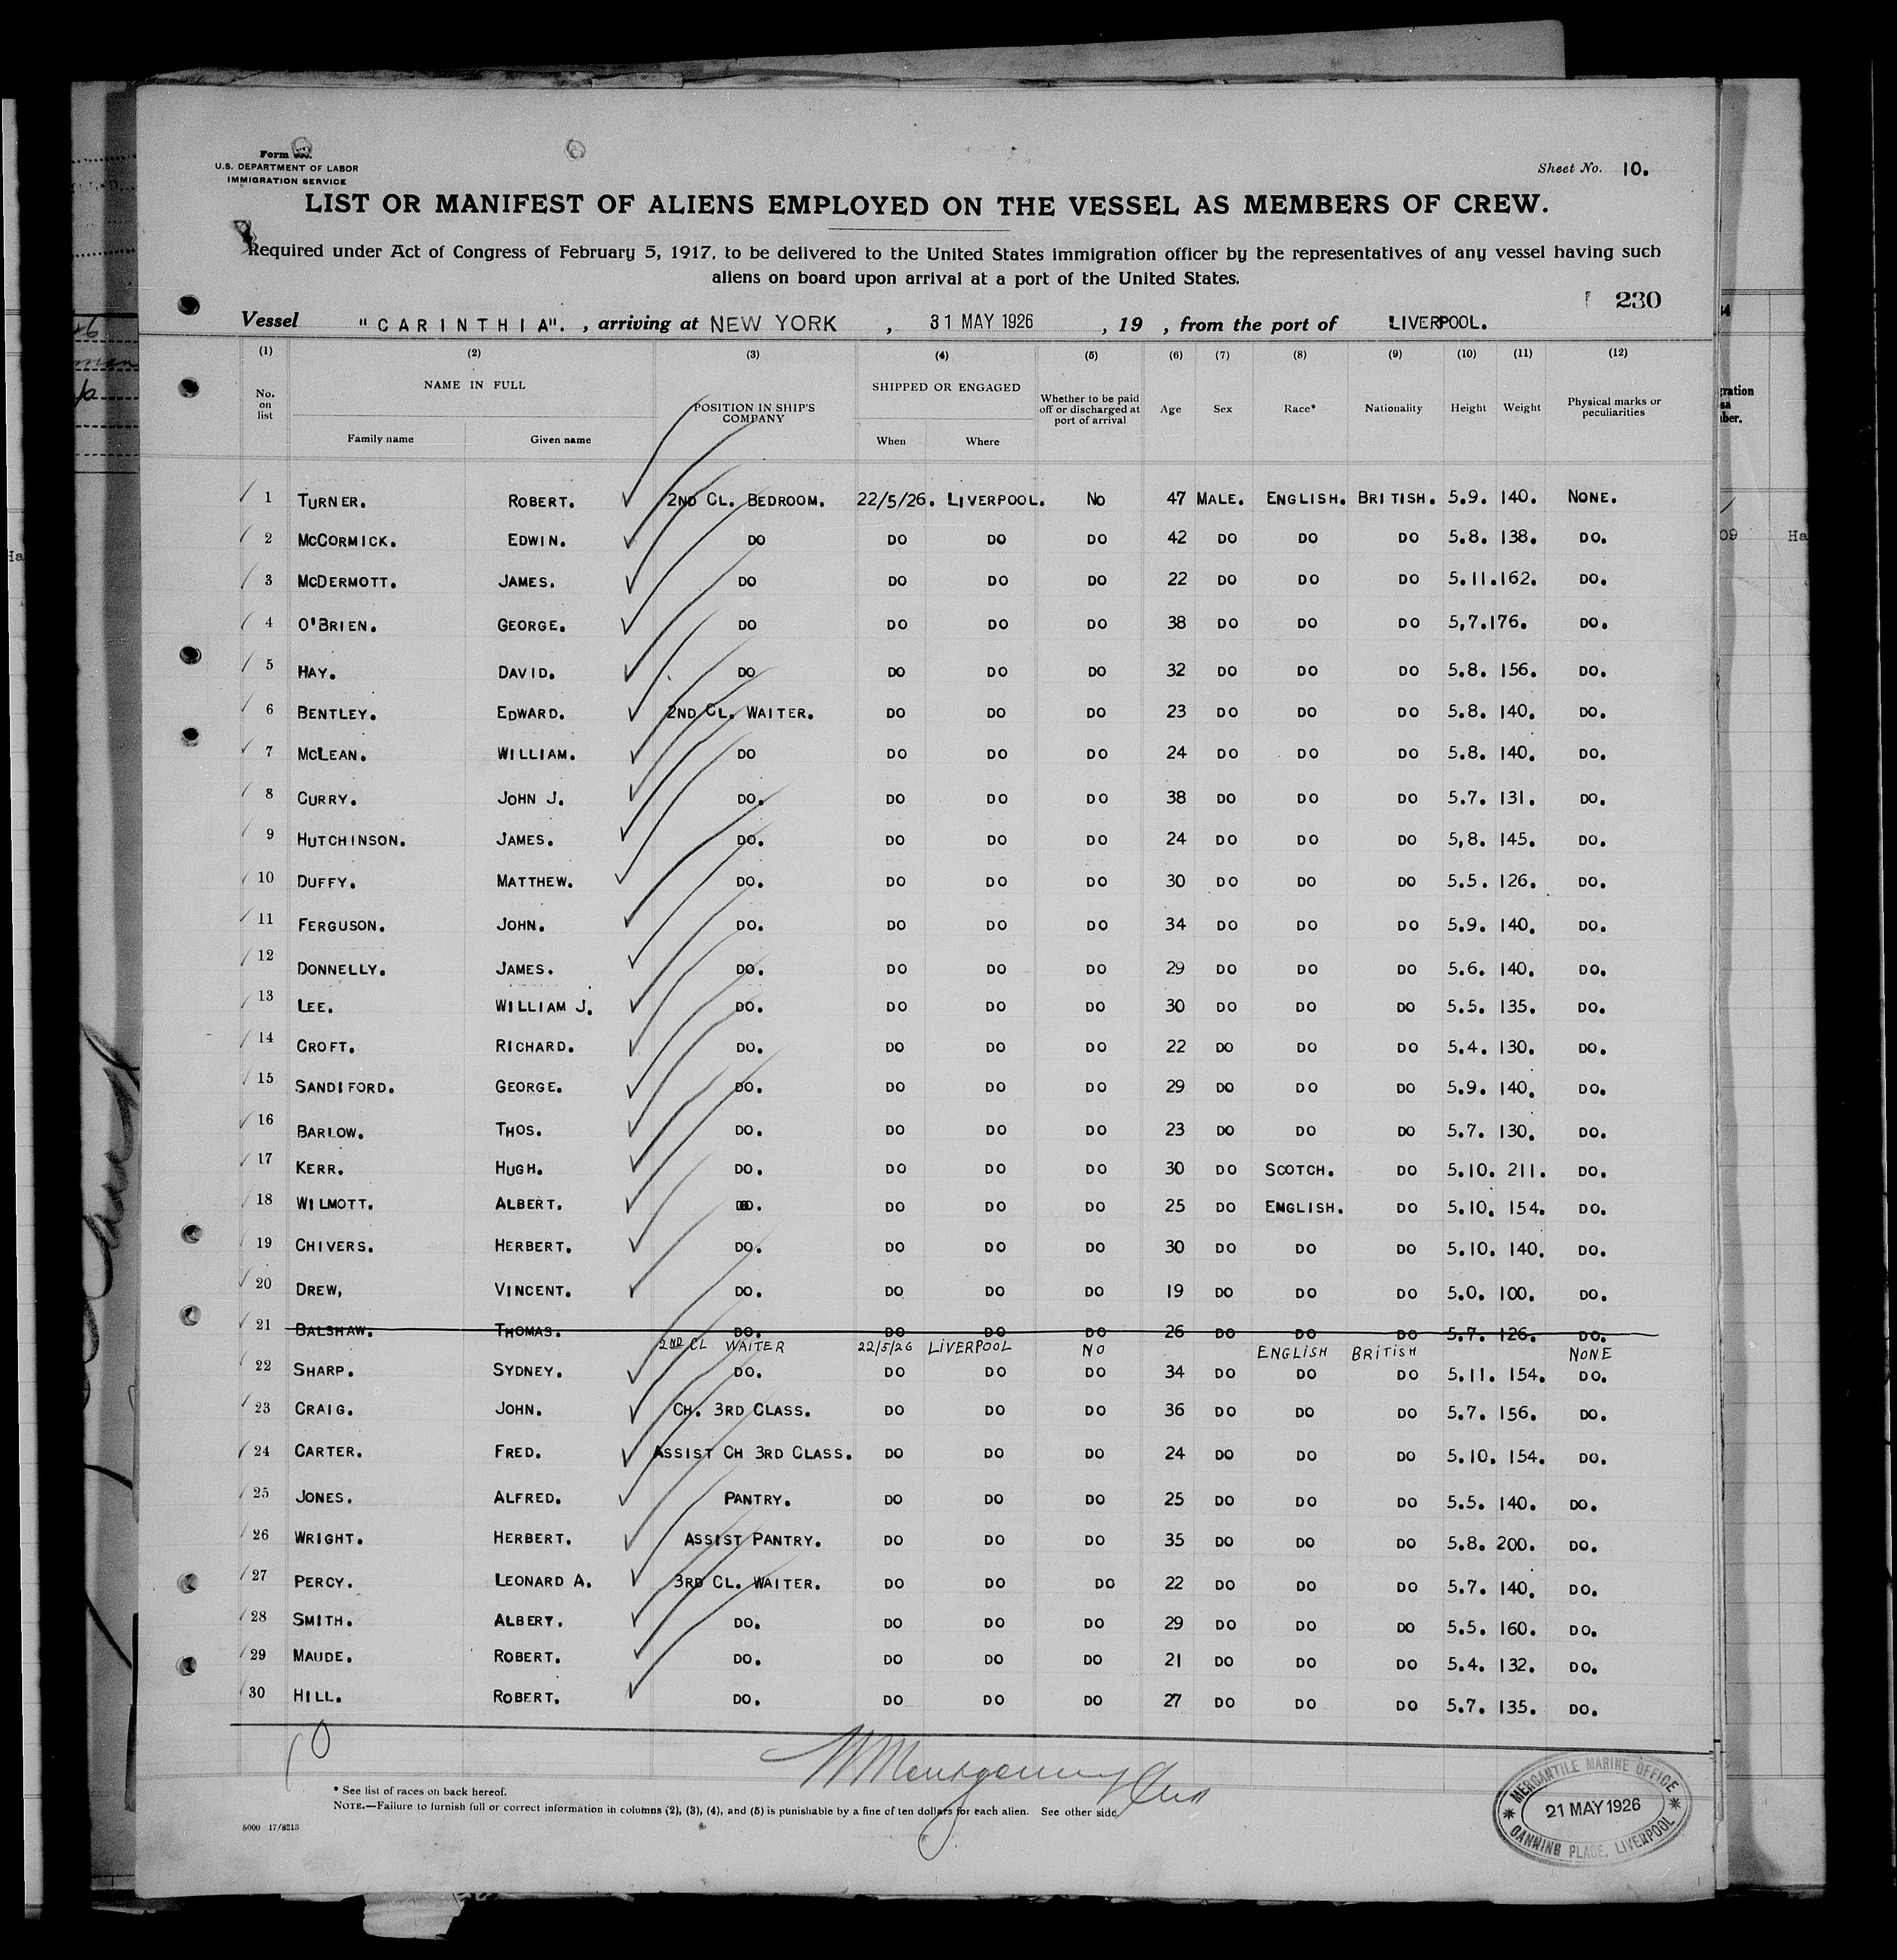 U.S. DEPARTMENT OF LABOR
IMMIGRATION SERVICE
Form
Sheet No. 10.
LIST OR MANIFEST OF ALIENS EMPLOYED ON THE VESSEL AS MEMBERS OF CREW.
Required under Act of Congress of February 5, 1917, to be delivered to the United States immigration officer by the representatives of any vessel having such
aliens on board upon arrival at a port of the United States.
230
Vessel "CARINTHIA". , arriving at NEW YORK , 31 MAY 1926 , 19 , from the port of LIVERPOOL.
(1) (2) (3) (4) (5) (6) (7) (8) (9) (10) (11) (12)
No. on list NAME IN FULL Family name Given name POSITION IN SHIP'S COMPANY SHIPPED OR ENGAGED When Where Whether to be paid off or discharged at port of arrival Age Sex Race* Nationality Height Weight Physical marks or peculiarities
1 TURNER. ROBERT. 2ND CL. BEDROOM. 22/5/26. LIVERPOOL. NO 47 MALE. ENGLISH. BRITISH. 5.9. 140. NONE.
2 MCCORMICK. EDWIN. DO DO DO DO 42 DO DO DO 5.8. 138. DO.
3 MCDERMOTT. JAMES. DO DO DO DO 22 DO DO DO 5.11. 162. DO.
4 O'BRIEN. GEORGE. DO DO DO DO 38 DO DO DO 5,7. 176. DO.
5 HAY. DAVID. DO DO DO DO 32 DO DO DO 5.8. 156. DO.
6 BENTLEY. EDWARD. 2ND CL. WAITER. DO DO DO 23 DO DO DO 5.8. 140. DO.
7 MCLEAN. WILLIAM. DO DO DO DO 24 DO DO DO 5.8. 140. DO.
8 CURRY. JOHN J. DO. DO DO DO 38 DO DO DO 5.7. 131. DO.
9 HUTCHINSON. JAMES. DO. DO DO DO 24 DO DO DO 5,8. 145. DO.
10 DUFFY. MATTHEW. DO. DO DO DO 30 DO DO DO 5.5. 126. DO.
11 FERGUSON. JOHN. DO. DO DO DO 34 DO DO DO 5.9. 140. DO.
12 DONNELLY. JAMES. DO. DO DO DO 29 DO DO DO 5.6. 140. DO.
13 LEE. WILLIAM J. DO. DO DO DO 30 DO DO DO 5.5. 135. DO.
14 CROFT. RICHARD. DO. DO DO DO 22 DO DO DO 5.4. 130. DO.
15 SANDIFORD. GEORGE. DO. DO DO DO 29 DO DO DO 5.9. 140. DO.
16 BARLOW. THOS. DO. DO DO DO 23 DO DO DO 5.7. 130. DO.
17 KERR. HUGH. DO. DO DO DO 30 DO SCOTCH. DO 5.10. 211. DO.
18 WILMOTT. ALBERT. DO. DO DO DO 25 DO ENGLISH. DO 5.10. 154. DO.
19 CHIVERS. HERBERT. DO. DO DO DO 30 DO DO DO 5.10. 140. DO.
20 DREW, VINCENT. DO. DO DO DO 19 DO DO DO 5.0. 100. DO.
21 BALSHAW. THOMAS. DO. DO DO DO 26 DO DO DO 5.7. 126. DO.
2ND CL WAITER 22/5/26 LIVERPOOL NO ENGLISH BRITISH NONE
22 SHARP. SYDNEY. DO. DO DO DO 34 DO DO DO 5.11. 154. DO.
23 CRAIG. JOHN. CH. 3RD CLASS. DO DO DO 36 DO DO DO 5.7. 156. DO.
24 CARTER. FRED. ASSIST CH 3RD CLASS. DO DO DO 24 DO DO DO 5.10. 154. DO.
25 JONES. ALFRED. PANTRY. DO DO DO 25 DO DO DO 5.5. 140. DO.
26 WRIGHT. HERBERT. ASSIST PANTRY. DO DO DO 35 DO DO DO 5.8. 200. DO.
27 PERCY. LEONARD A. 3RD CL. WAITER. DO DO DO 22 DO DO DO 5.7. 140. DO.
28 SMITH. ALBERT. DO. DO DO DO 29 DO DO DO 5.5. 160. DO.
29 MAUDE. ROBERT. DO. DO DO DO 21 DO DO DO 5.4. 132. DO.
30 HILL. ROBERT. DO. DO DO DO 27 DO DO DO 5.7. 135. DO.
Montgomery
* See list of races on back hereof.
NOTE.—Failure to furnish full or correct information in columns (2), (3), (4), and (5) is punishable by a fine of ten dollars for each alien. See other side.
5000 17/8213
MERCANTILE MARINE OFFICE
21 MAY 1926
CANNING PLACE, LIVERPOOL